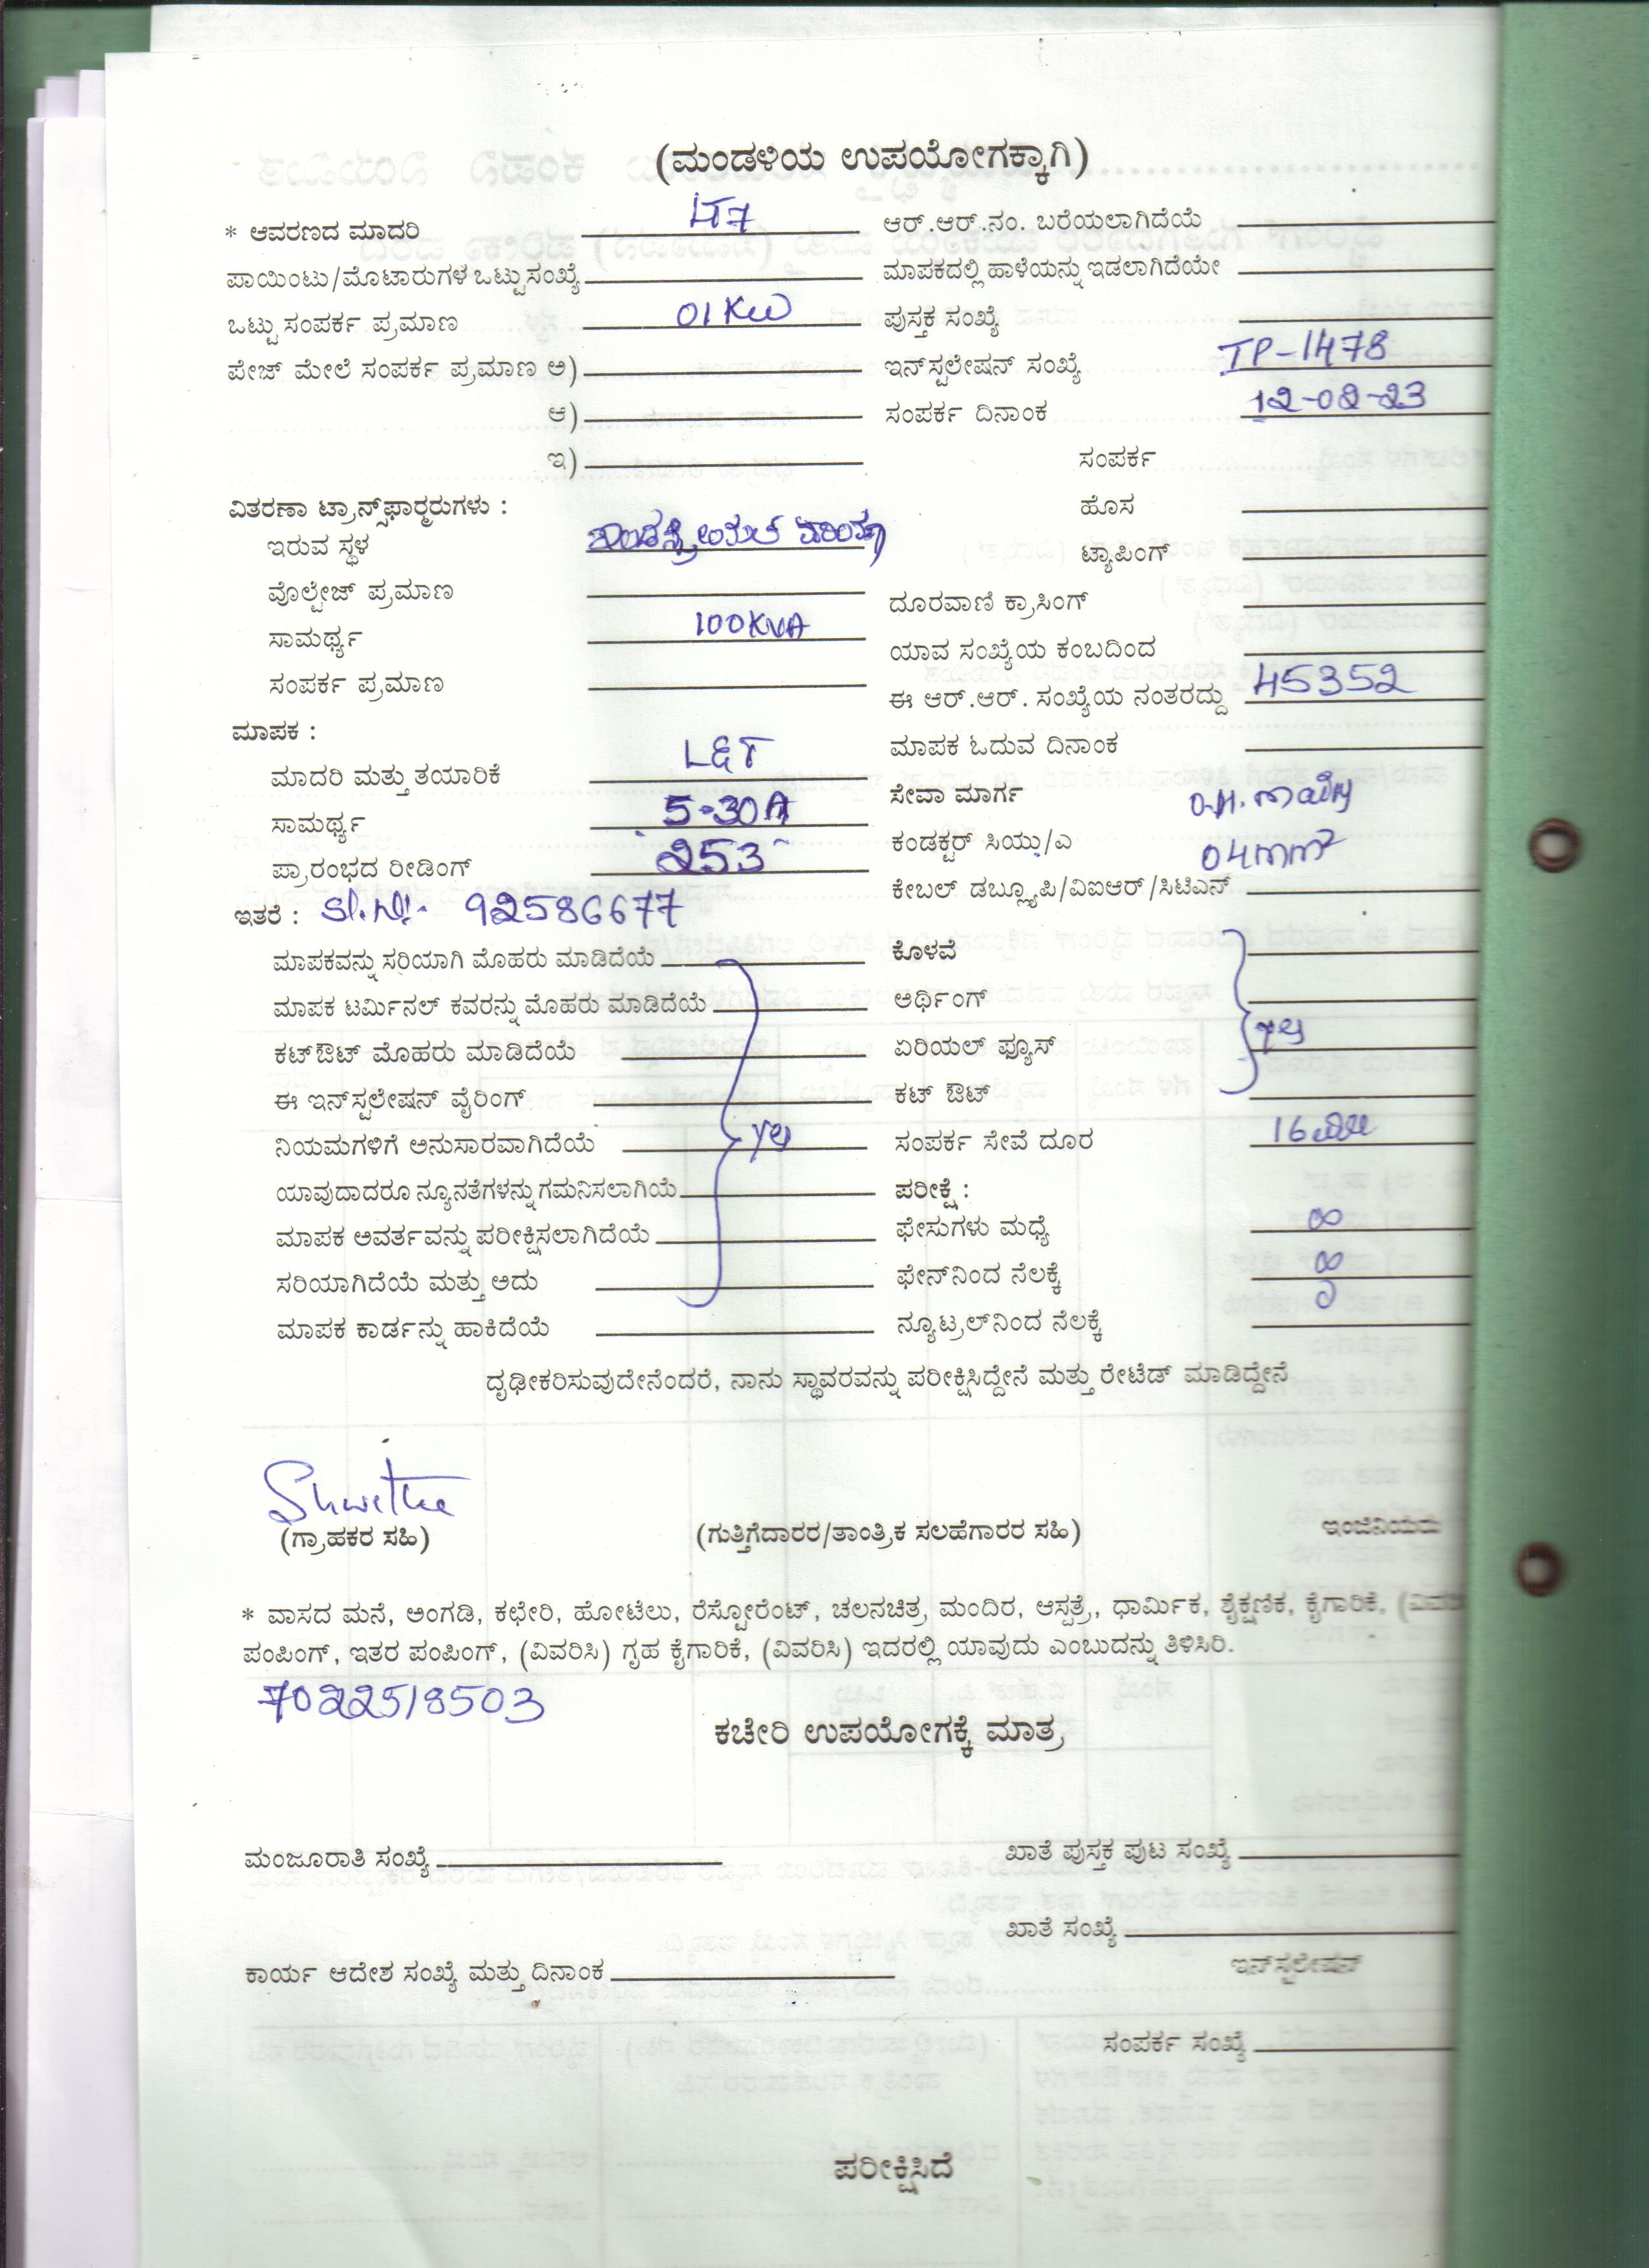 (ಮಂಡಳಿಯ ಉಪಯೋಗಕ್ಕಾಗಿ)
* ಆವರಣದ ಮಾದರಿ LT7 ಆರ್.ಆರ್.ನಂ. ಬರೆಯಲಾಗಿದೆಯೆ
ಪಾಯಿಂಟು/ಮೊಟಾರುಗಳ ಒಟ್ಟು ಸಂಖ್ಯೆ ಮಾಪಕದಲ್ಲಿ ಹಾಳೆಯನ್ನು ಇಡಲಾಗಿದೆಯೇ
ಒಟ್ಟು ಸಂಪರ್ಕ ಪ್ರಮಾಣ 01KW ಪುಸ್ತಕ ಸಂಖ್ಯೆ
ಪೇಜ್ ಮೇಲೆ ಸಂಪರ್ಕ ಪ್ರಮಾಣ ಅ) ಇನ್‌ಸ್ಟಲೇಷನ್ ಸಂಖ್ಯೆ TP-1478
ಆ) ಸಂಪರ್ಕ ದಿನಾಂಕ 12-02-23
ಇ) ಸಂಪರ್ಕ
ವಿತರಣಾ ಟ್ರಾನ್ಸ್‌ಫಾರ್‍ಮರುಗಳು : ಹೊಸ
ಇರುವ ಸ್ಥಳ ಟ್ಯಾಪಿಂಗ್
ವೊಲ್ಟೇಜ್ ಪ್ರಮಾಣ ದೂರವಾಣಿ ಕ್ರಾಸಿಂಗ್
ಸಾಮರ್ಥ್ಯ 100KVA ಯಾವ ಸಂಖ್ಯೆಯ ಕಂಬದಿಂದ
ಸಂಪರ್ಕ ಪ್ರಮಾಣ ಈ ಆರ್.ಆರ್. ಸಂಖ್ಯೆಯ ನಂತರದ್ದು 45352
ಮಾಪಕ : ಮಾಪಕ ಓದುವ ದಿನಾಂಕ
ಮಾದರಿ ಮತ್ತು ತಯಾರಿಕೆ L&T ಸೇವಾ ಮಾರ್ಗ
ಸಾಮರ್ಥ್ಯ 5-30A ಕಂಡಕ್ಟರ್ ಸಿಯು/ಎ 04mm²
ಪ್ರಾರಂಭದ ರೀಡಿಂಗ್ 253 ಕೇಬಲ್ ಡಬ್ಲ್ಯೂಪಿ/ವಿಐಆರ್/ಸಿಟಿಎನ್
ಇತರೆ : Sl.No:- 92586677
ಮಾಪಕವನ್ನು ಸರಿಯಾಗಿ ಮೊಹರು ಮಾಡಿದೆಯೆ ಕೊಳವೆ
ಮಾಪಕ ಟರ್ಮಿನಲ್ ಕವರನ್ನು ಮೊಹರು ಮಾಡಿದೆಯೆ ಅರ್ಥಿಂಗ್
ಕಟ್‌ಔಟ್ ಮೊಹರು ಮಾಡಿದೆಯೆ ಏರಿಯಲ್ ಫ್ಯೂಸ್ yes
ಈ ಇನ್‌ಸ್ಟಲೇಷನ್ ವೈರಿಂಗ್ ಕಟ್ ಔಟ್
ನಿಯಮಗಳಿಗೆ ಅನುಸಾರವಾಗಿದೆಯೆ yes ಸಂಪರ್ಕ ಸೇವೆ ದೂರ 16
ಯಾವುದಾದರೂ ನ್ಯೂನತೆಗಳನ್ನು ಗಮನಿಸಲಾಗಿಯೆ ಪರೀಕ್ಷೆ :
ಮಾಪಕ ಅವರ್ತವನ್ನು ಪರೀಕ್ಷಿಸಲಾಗಿದೆಯೆ ಫೇಸುಗಳು ಮಧ್ಯೆ ∞
ಸರಿಯಾಗಿದೆಯೆ ಮತ್ತು ಅದು ಫೇನ್‌ನಿಂದ ನೆಲಕ್ಕೆ ∞
ಮಾಪಕ ಕಾರ್ಡನ್ನು ಹಾಕಿದೆಯೆ ನ್ಯೂಟ್ರಲ್‌ನಿಂದ ನೆಲಕ್ಕೆ 0
ದೃಢೀಕರಿಸುವುದೇನೆಂದರೆ, ನಾನು ಸ್ಥಾವರವನ್ನು ಪರೀಕ್ಷಿಸಿದ್ದೇನೆ ಮತ್ತು ರೇಟೆಡ್ ಮಾಡಿದ್ದೇನೆ
Shwetha
(ಗ್ರಾಹಕರ ಸಹಿ) (ಗುತ್ತಿಗೆದಾರರ/ತಾಂತ್ರಿಕ ಸಲಹೆಗಾರರ ಸಹಿ) ಇಂಜಿನಿಯರು
* ವಾಸದ ಮನೆ, ಅಂಗಡಿ, ಕಛೇರಿ, ಹೋಟೆಲು, ರೆಸ್ಟೋರೆಂಟ್, ಚಲನಚಿತ್ರ ಮಂದಿರ, ಆಸ್ಪತ್ರೆ, ಧಾರ್ಮಿಕ, ಶೈಕ್ಷಣಿಕ, ಕೈಗಾರಿಕೆ,
ಪಂಪಿಂಗ್, ಇತರ ಪಂಪಿಂಗ್, (ವಿವರಿಸಿ) ಗೃಹ ಕೈಗಾರಿಕೆ, (ವಿವರಿಸಿ) ಇದರಲ್ಲಿ ಯಾವುದು ಎಂಬುದನ್ನು ತಿಳಿಸಿರಿ.
7022518503
ಕಚೇರಿ ಉಪಯೋಗಕ್ಕೆ ಮಾತ್ರ
ಮಂಜೂರಾತಿ ಸಂಖ್ಯೆ ಖಾತೆ ಪುಸ್ತಕ ಪುಟ ಸಂಖ್ಯೆ
ಖಾತೆ ಸಂಖ್ಯೆ
ಕಾರ್ಯ ಆದೇಶ ಸಂಖ್ಯೆ ಮತ್ತು ದಿನಾಂಕ ಇನ್‌ಸ್ಟಲೇಷನ್
ಸಂಪರ್ಕ ಸಂಖ್ಯೆ
ಪರೀಕ್ಷಿಸಿದೆ